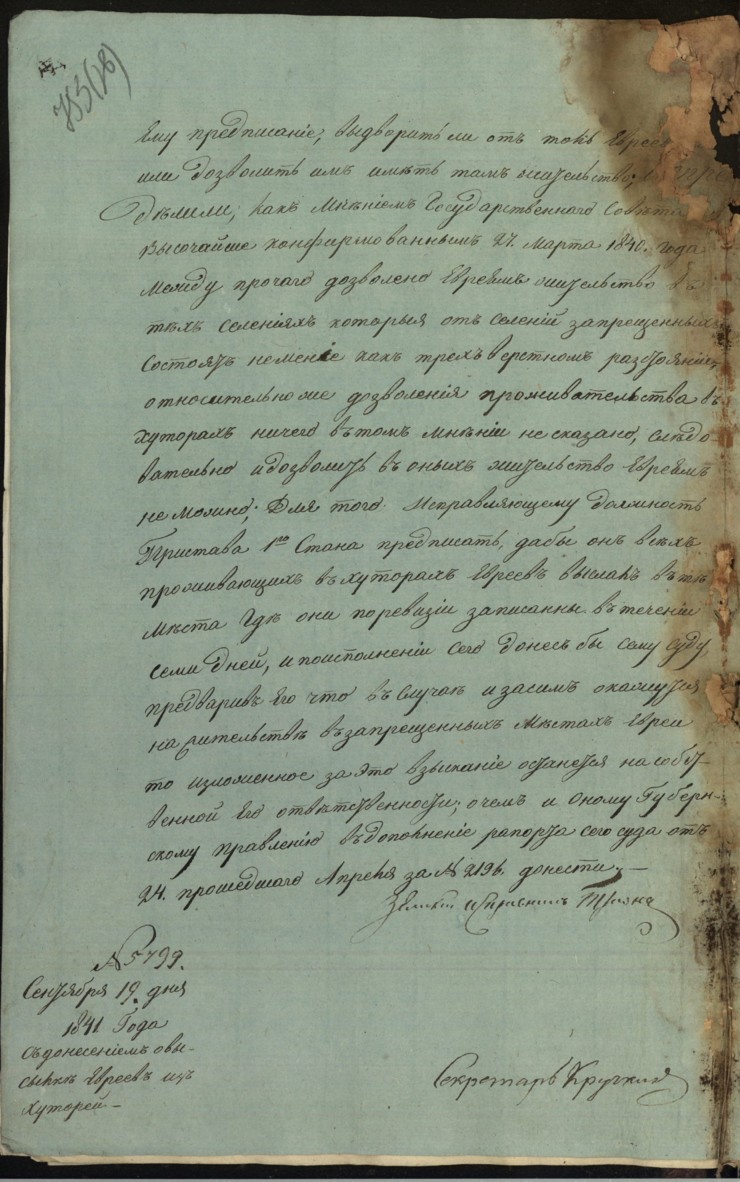 753(18)
Ему предписаніе; выдворить ли отъ толь Евреев
или дозволить имъ имѣть тамъ жительство; Опре
дѣлили; какъ Мнѣніемъ Государственнаго Совѣта
Высочайше конфирмованнымъ 27. Марта 1840. года
Между прочаго дозволено Евреямъ жительство въ
тѣхъ селеніяхъ которыя отъ селеній запрещенныхъ
состоятъ неменѣе какъ трехъ верстномъ разстояніи,
относительно же дозволенія проживательства въ
хуторахъ ничего вътомъ Мнѣніи не сказано, слѣдо-
вательно идозволить въоныхъ жительство Евреямъ
не можно; Для того Исправляющему должность
Пристава 1го Стана предписать, дабы онъ всѣхъ
проживающихъ въхуторахъ Евреевъ выслалъ вътѣ
Мѣста Гдѣ они поревизіи записанны въ теченіи
семи дней, и поисполненіи сего донесъ бы сему суду,
предваривъ Его что въ случаѣ изасимъ окажутся
на жительствѣ възапрещенныхъ Мѣстахъ Евреи
то изложенное за это взысканіе останется насобст-
венной Его отвѣтственности; очемъ и оному Губерн-
скому Правленію въдополненіе рапорта сего суда отъ
24. прошедшаго Апреля за № 2196. донести.—
Земскій исправникъ
№ 5799.
Сентября 19. дня
1841. Года
съдонесеніемъ овы-
сылкѣ Евреевъ изъ
хуторей.—
Секретарь